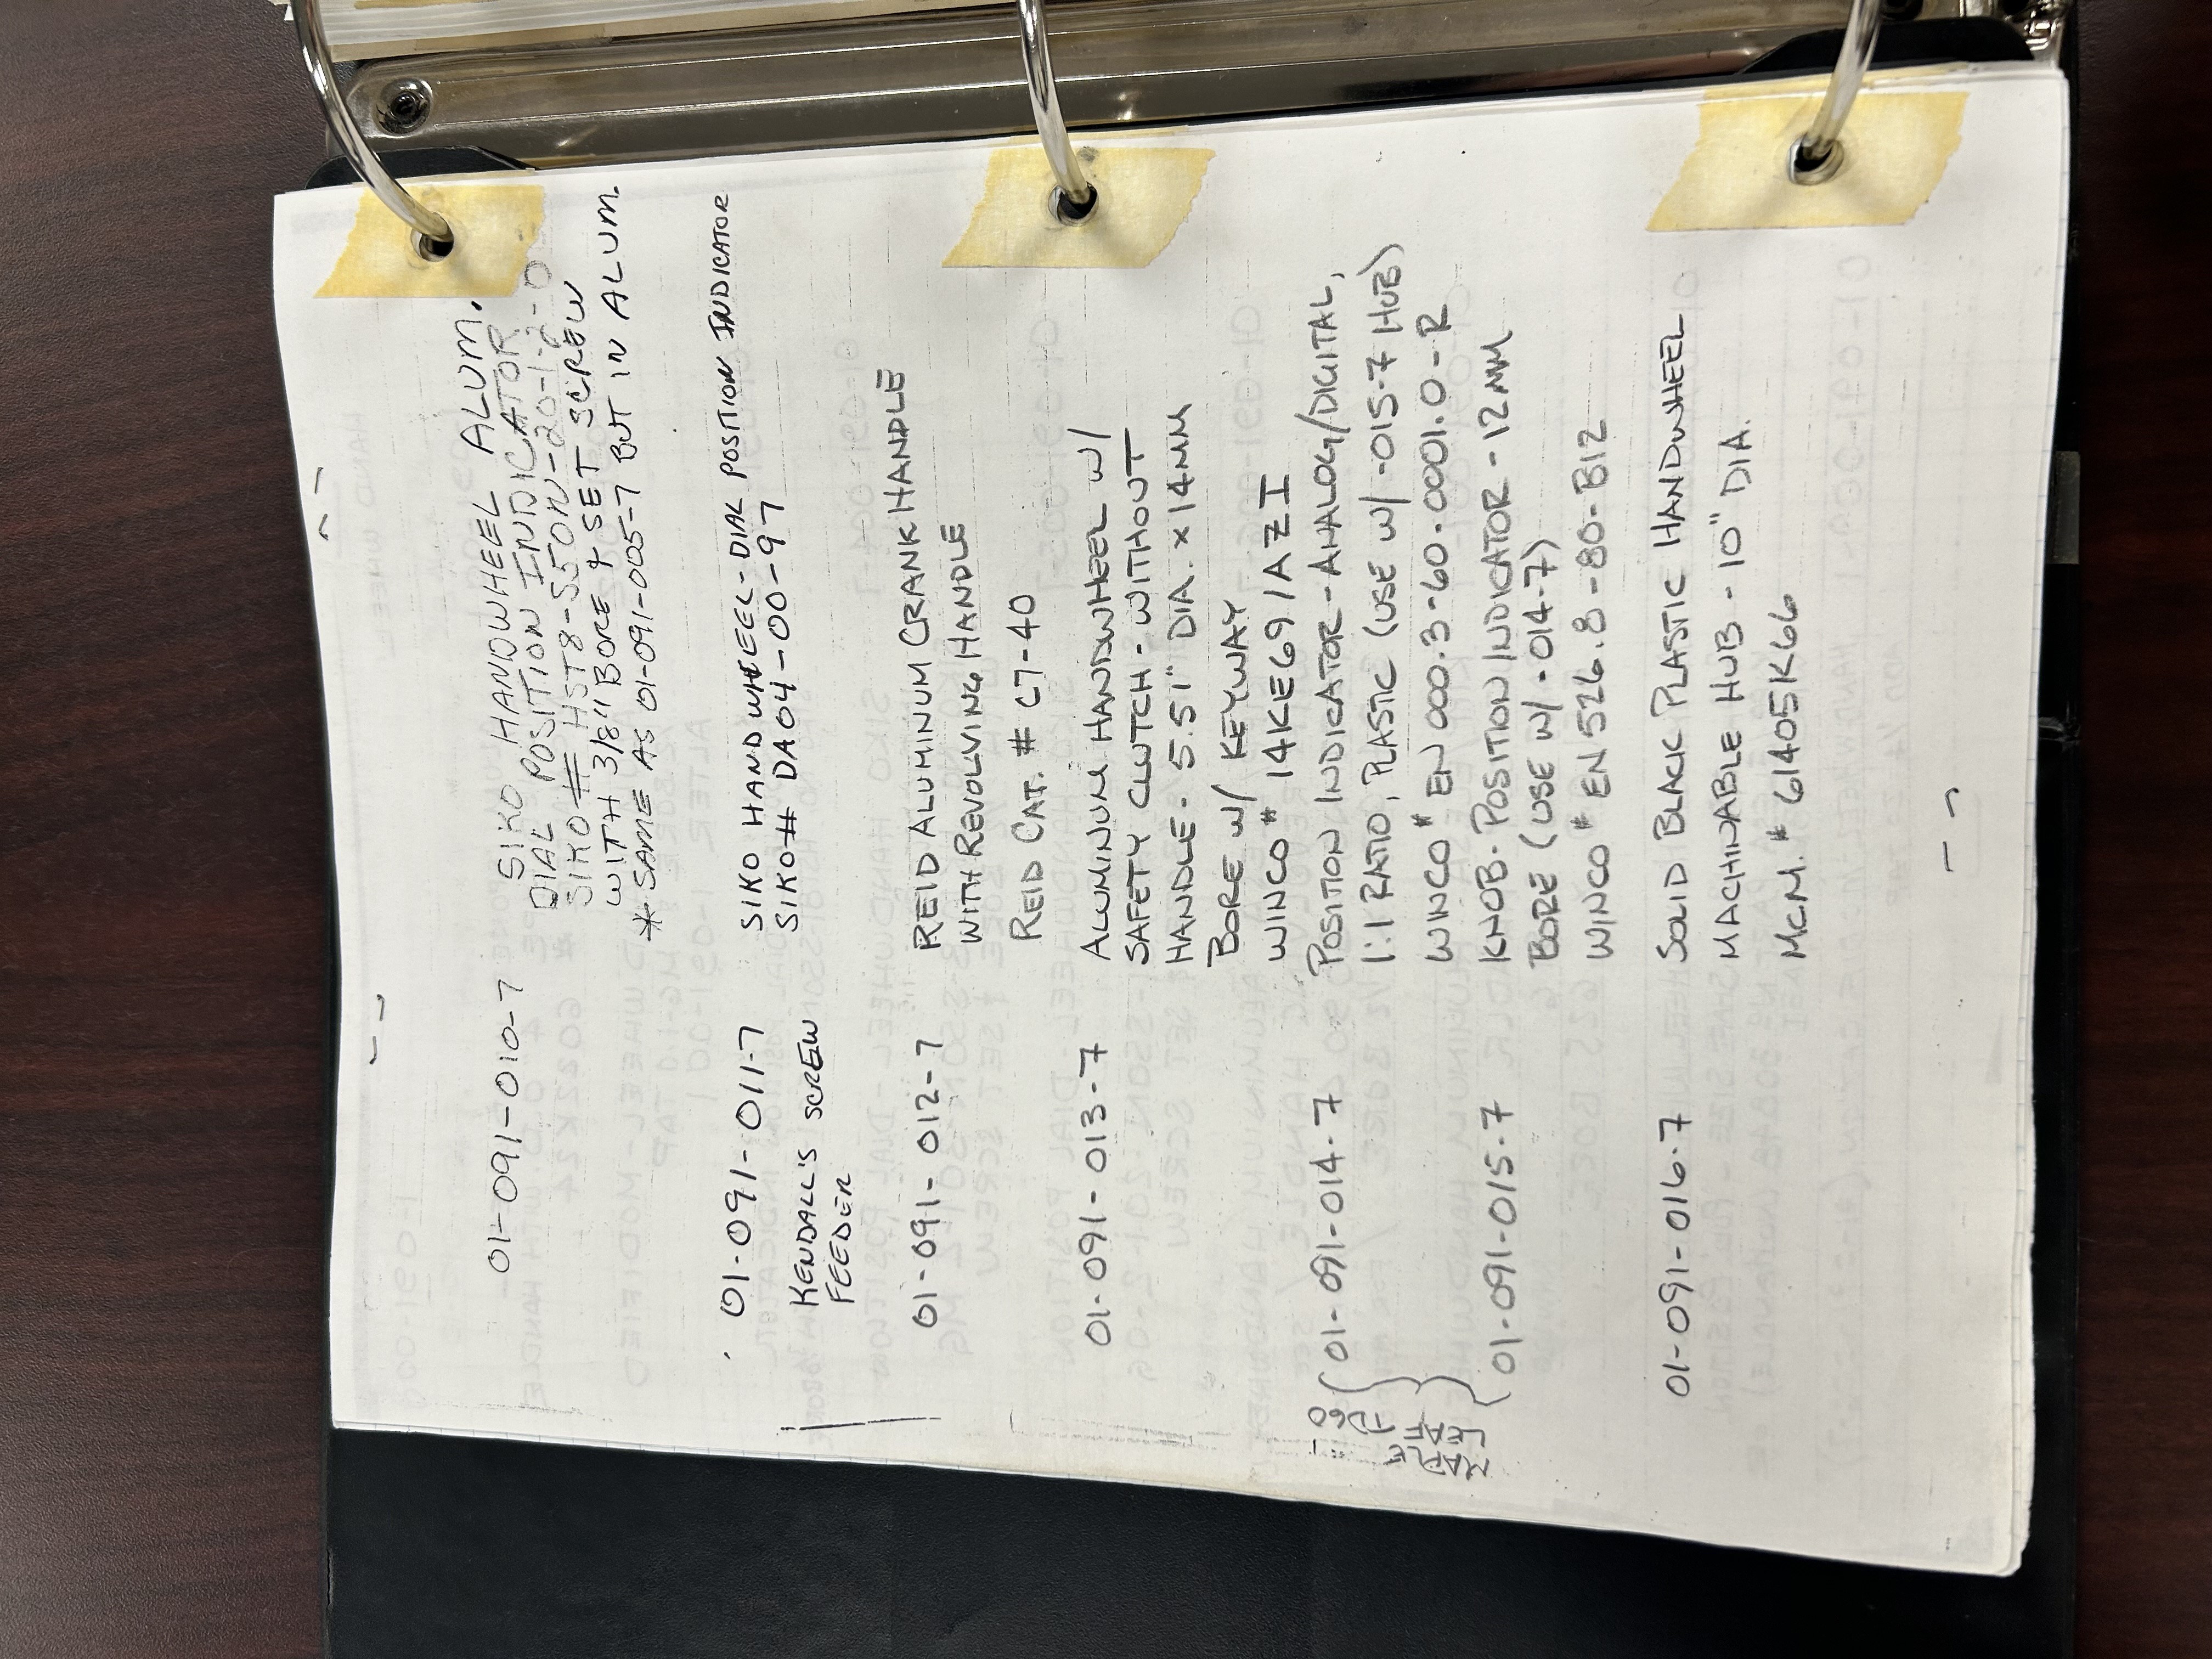 01-091-010-7 SIKO HANDWHEEL ALUM.
DIAL POSITION INDICATOR
SIKO# HST8-S50N-20-1-2-0
WITH 3/8" BORE & SET SCREW
* SAME AS 01-091-005-7 BUT IN ALUM.
01-091-011-7 SIKO HANDWHEEL-DIAL POSITION INDICATOR
SIKO# DA04-00-97
KENDALL'S SCREW
FEEDER
01-091-012-7 REID ALUMINUM CRANK HANDLE
WITH REVOLVING HANDLE
REID CAT. # C7-40
01-091-013-7 ALUMINUM HANDWHEEL W/
SAFETY CLUTCH - WITHOUT
HANDLE - 5.51" DIA. x 14MM
BORE W/ KEYWAY
WINCO # 14KE69/AZI
MAPLE
LEAF TD60
01-091-014-7 POSITION INDICATOR - ANALOG/DIGITAL,
1:1 RATIO, PLASTIC (USE W/ -015-7 HUB)
WINCO # EN 000.3-60-0001.0-R
01-091-015-7 KNOB - POSITION INDICATOR - 12MM
BORE (USE W/ -014-7)
WINCO # EN 526.8-80-B12
01-091-016-7 SOLID BLACK PLASTIC HANDWHEEL
MACHINABLE HUB - 10" DIA.
MCM. # 61405K66